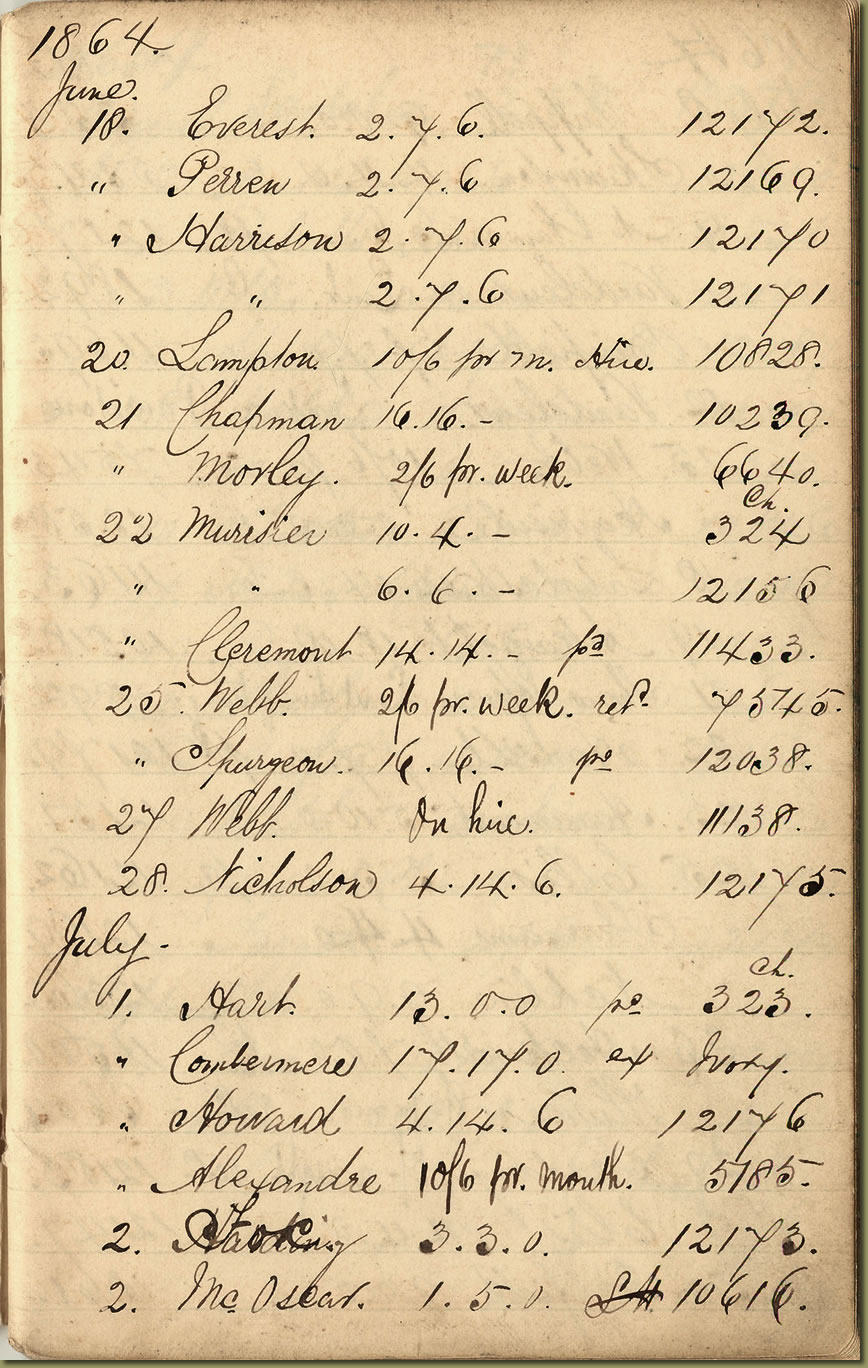 1864.
June.
18. Everest. 2. 7. 6. 12172.
" Perren 2. 7. 6 12169.
" Harrison 2. 7. 6 12170
" " 2. 7. 6 12171
20. Lampton. 10/6 pr m. Hire. 10828.
21 Chapman 16.16. - 10239.
" Morley. 2/6 pr. week. 6640.
Ch.
22 Murisier 10. 4. - 324
" " 6. 6. - 12156
" Cleremont 14. 14. - pd 11433.
25. Webb. 2/6 pr. week. retd. 7545.
" Spurgeon. 16. 16. - pd 12038.
27 Webb. On hire. 11138.
28. Nicholson 4. 14. 6. 12175.
July -
ch.
1. Hart. 13. 0. 0 pd 323.
" Combermere 17. 17. 0. ex Ivory.
" Howard 4. 14. 6 12176
" Alexandre 10/6 pr. month. 5185.
2. 3. 3. 0. 12173.
2. Mc Oscar. 1. 5. 0. 10616.